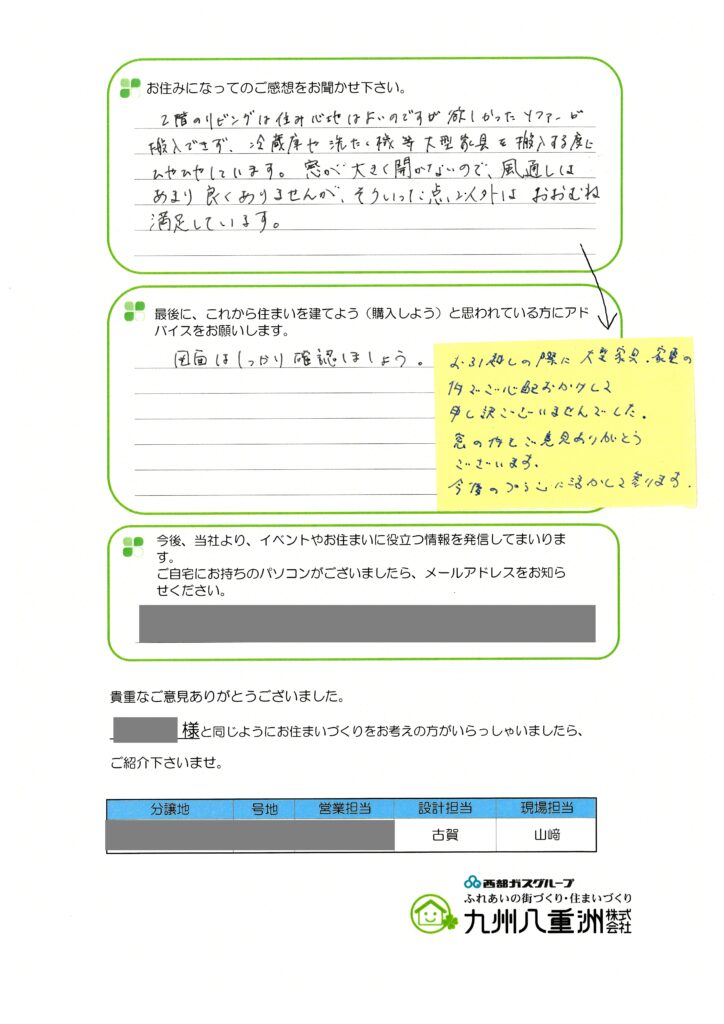 お住みになってのご感想をお聞かせ下さい。
2階のリビングは住み心地はよいのですが欲しかったソファーが
搬入できず、冷蔵庫や洗たく機等大型家具を搬入する度に
ヒヤヒヤしています。窓が大きく開かないので、風通しは
あまり良くありませんが、そういった点以外はおおむね
満足しています。
最後に、これから住まいを建てよう（購入しよう）と思われている方にアド
バイスをお願いします。
図面はしっかり確認しましょう。
お引越しの際に大型家具・家電の
件でご心配おかけして
申し訳ございませんでした。
窓の件もご意見ありがとう
ございます。
今後のプランに活かして参ります。
今後、当社より、イベントやお住まいに役立つ情報を発信してまいりま
す。
ご自宅にお持ちのパソコンがございましたら、メールアドレスをお知ら
せください。
貴重なご意見ありがとうございました。
様と同じようにお住まいづくりをお考えの方がいらっしゃいましたら、
ご紹介下さいませ。
分譲地 号地 営業担当 設計担当 現場担当
古賀 山﨑
西部ガスグループ
ふれあいの街づくり・住まいづくり
九州八重洲株式会社